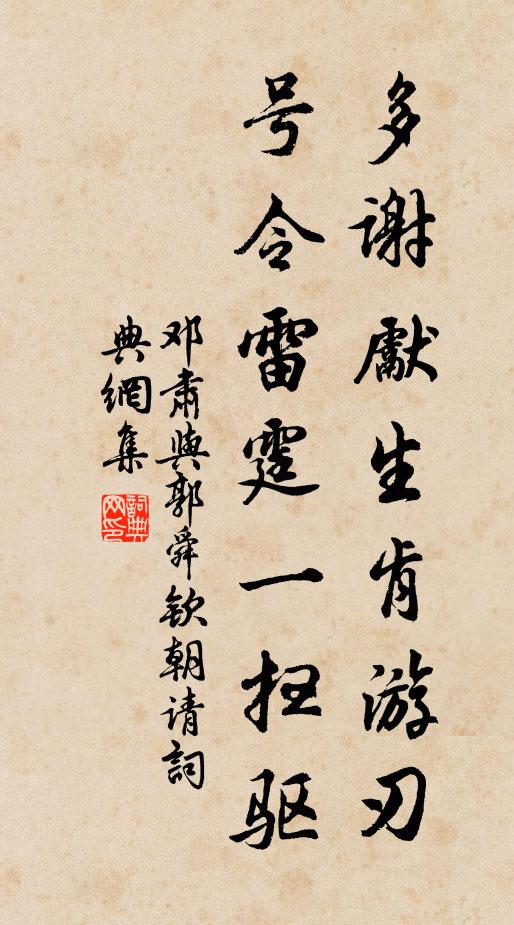 多谢獻生肯游刃
号令雷霆一扫驱
邓肃與郭舜钦朝请詞
典網集
詞典網印